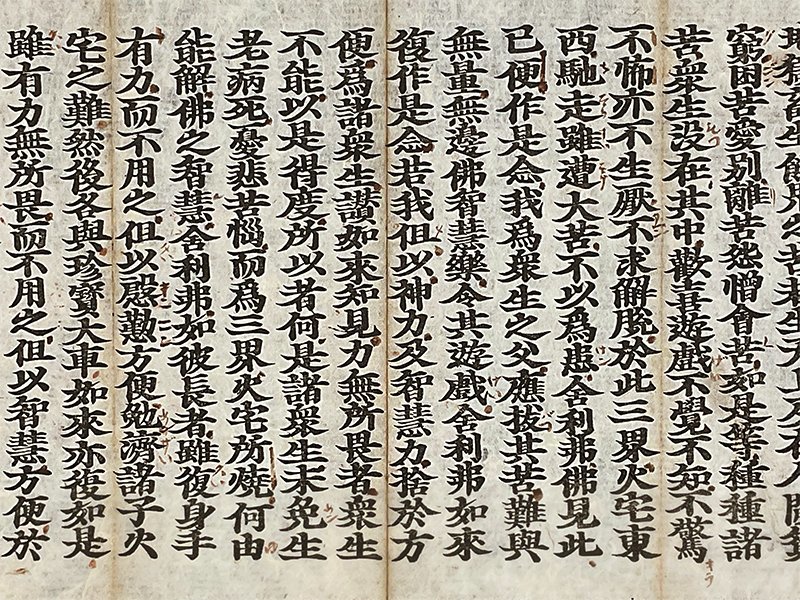 地獄畜生餓鬼之苦若生天上及在人間貧
窮困苦愛別離苦怨憎會苦如是等種種諸
苦衆生没在其中歡喜遊戲不覺不知不驚
不怖亦不生厭不求解脱於此三界火宅東
西馳走雖遭大苦不以爲患舍利弗佛見此
已便作是念我爲衆生之父應拔其苦難與
無量無邊佛智慧樂令其遊戲舍利弗如來
復作是念若我但以神力及智慧力捨於方
便爲諸衆生讃如來知見力無所畏者衆生
不能以是得度所以者何是諸衆生未免生
老病死憂悲苦惱而爲三界火宅所燒何由
能解佛之智慧舍利弗如彼長者雖復身手
有力而不用之但以慇懃方便勉濟諸子火
宅之難然後各與珍寶大車如來亦復如是
雖有力無所畏而不用之但以智慧方便於